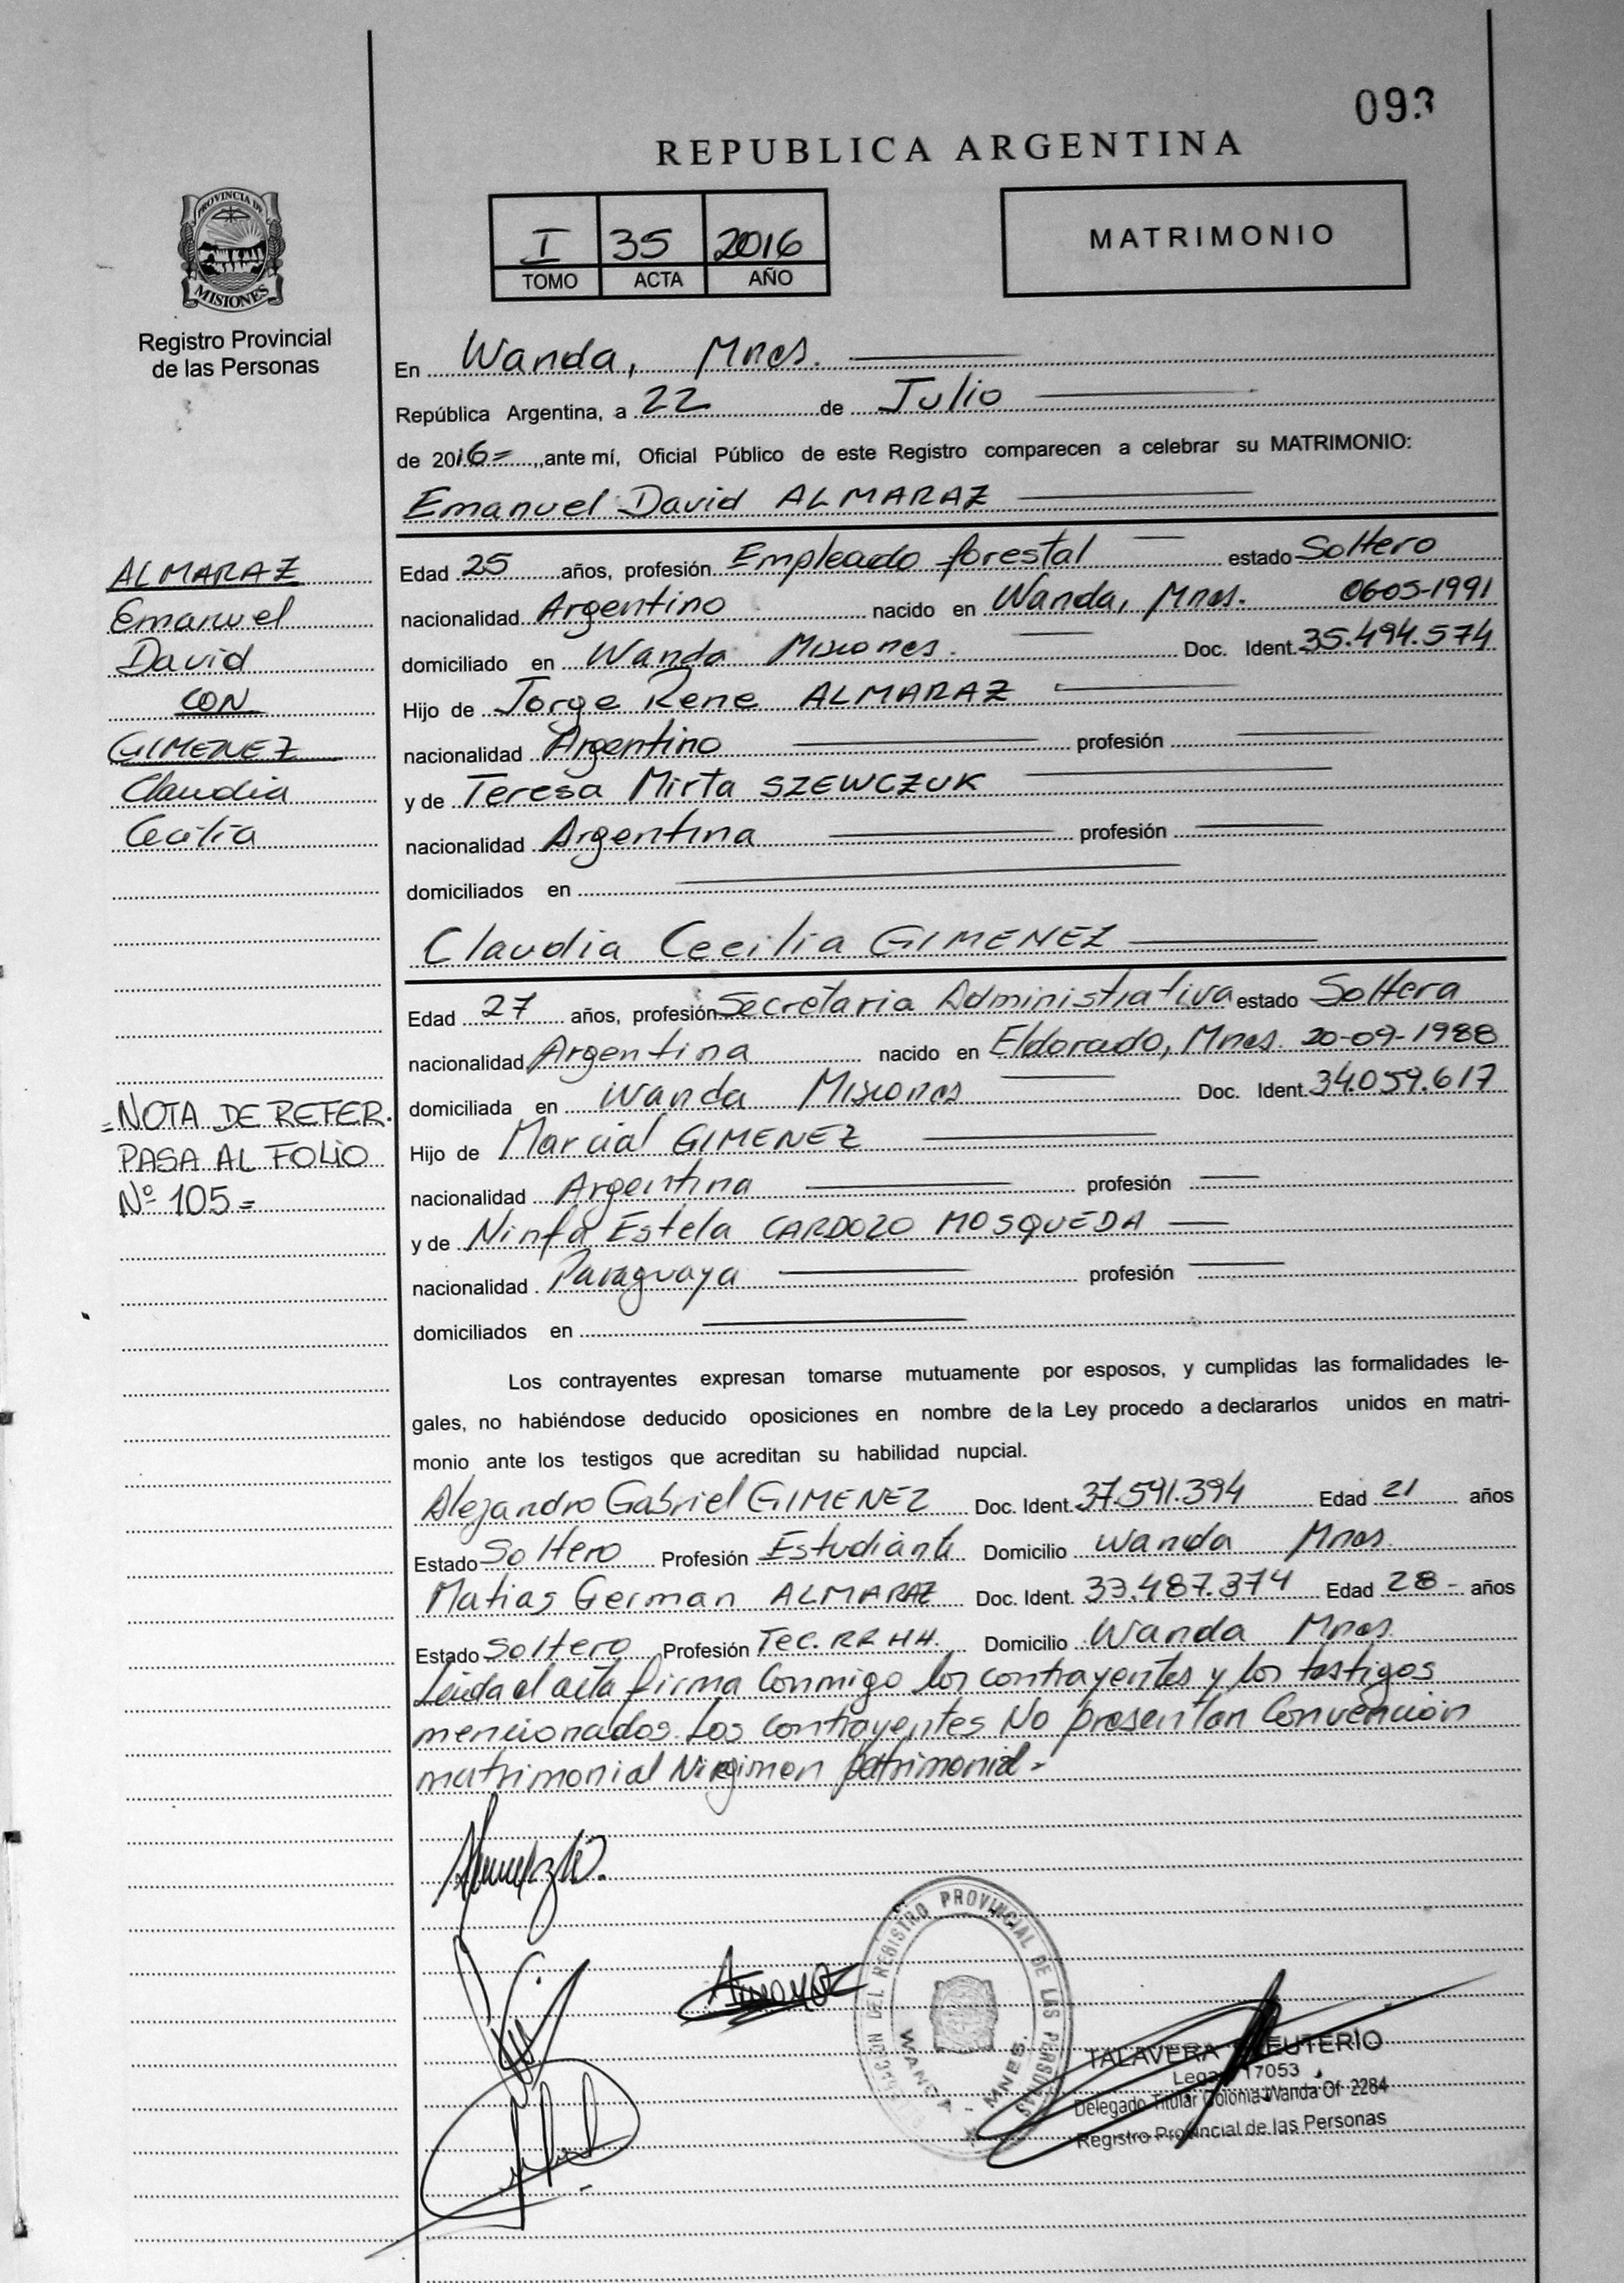 093
REPUBLICA ARGENTINA
PROVINCIA DE
MISIONES
Registro Provincial
de las Personas
I 35 2016
TOMO ACTA AÑO
MATRIMONIO
En Wanda, Mnes.
República Argentina, a 22 de Julio
de 2016= ,ante mí, Oficial Público de este Registro comparecen a celebrar su MATRIMONIO:
Emanuel David ALMARAZ
Edad 25 años, profesión Empleado forestal estado Soltero
nacionalidad Argentino nacido en Wanda, Mnes. 0605-1991
domiciliado en Wanda Misiones. Doc. Ident. 35.494.574
Hijo de Jorge Rene ALMARAZ
nacionalidad Argentino profesión
y de Teresa Mirta SZEWCZUK
nacionalidad Argentina profesión
domiciliados en
Claudia Cecilia GIMENEZ
Edad 27 años, profesión Secretaria Administrativa estado Soltera
nacionalidad Argentina nacido en Eldorado, Mnes. 20-09-1988
domiciliada en Wanda Misiones Doc. Ident. 34.059.617
Hijo de Marcial GIMENEZ
nacionalidad Argentina profesión
y de Ninfa Estela CARDOZO MOSQUEDA
nacionalidad Paraguaya profesión
domiciliados en
Los contrayentes expresan tomarse mutuamente por esposos, y cumplidas las formalidades le-
gales, no habiéndose deducido oposiciones en nombre de la Ley procedo a declararlos unidos en matri-
monio ante los testigos que acreditan su habilidad nupcial.
Alejandro Gabriel GIMENEZ Doc. Ident. 37.591.394 Edad 21 años
Estado Soltero Profesión Estudiante Domicilio Wanda Mnes.
Matias German ALMARAZ Doc. Ident. 33.487.374 Edad 28 - años
Estado Soltero Profesión Tec. RRHH. Domicilio Wanda Mnes.
Leida el acta firma Conmigo los contrayentes y los testigos
mencionados. Los Contrayentes No presentan Convención
matrimonial Ni regimen patrimonial.-
ALMARAZ
Emanuel
David
CON
GIMENEZ
Claudia
Cecilia
=NOTA DE REFER.
PASA AL FOLIO
Nº 105=
DEL REGISTRO PROVINCIAL DE LAS PERSONAS
WANDA - MNES.
TALAVERA
17053
Delegado Titular Colonia Wanda Of. 2284
Registro Provincial de las Personas